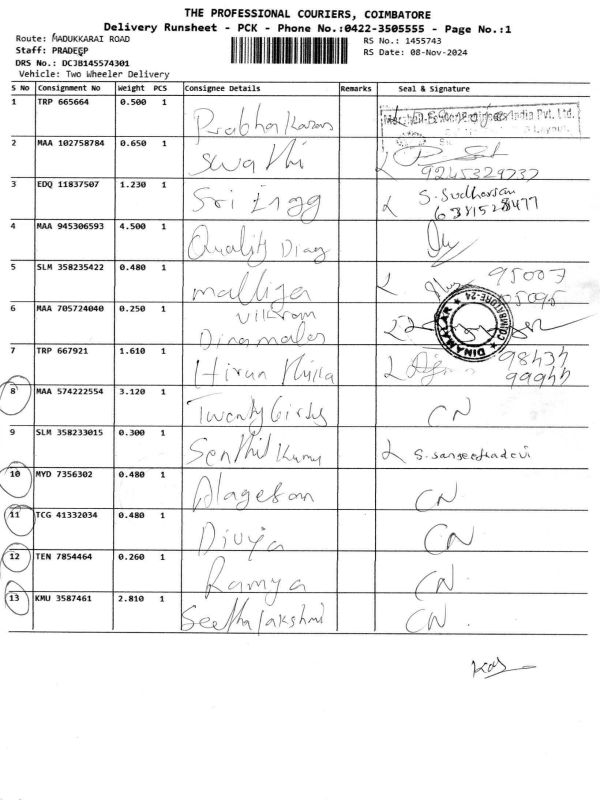 THE PROFESSIONAL COURIERS, COIMBATORE
Delivery Runsheet - PCK - Phone No.:0422-3505555 - Page No.:1
Route: MADUKKARAI ROAD
RS No.: 1455743
Staff: PRADEEP
RS Date: 08-Nov-2024
DRS No.: DCJB145574301
Vehicle: Two Wheeler Delivery
S No Consignment No Weight PCS Consignee Details Remarks Seal & Signature
1 TRP 665664 0.500 1 Prabhakaran
India Pvt. Ltd.
2 MAA 102758784 0.650 1 Swathi
9245329737
3 EDQ 11837507 1.230 1 Sri Engg S. Sudharsan
6381528477
4 MAA 945306593 4.500 1 Quality Diag
5 SLM 358235422 0.480 1 Malliga 95007
05095
6 MAA 705724040 0.250 1 Vikram
Dinamalar DINAMALAR COIMBATORE-24
7 TRP 667921 1.610 1 Hiran 98434
99944
8 MAA 574222554 3.120 1 Twenty Girls CN
9 SLM 358233015 0.300 1 Senthil Kumar S. Sangeethadevi
10 MYD 7356302 0.480 1 Alagesan CN
11 TCG 41332034 0.480 1 Divya CN
12 TEN 7854464 0.260 1 Ramya CN
13 KMU 3587461 2.810 1 Seethalakshmi CN